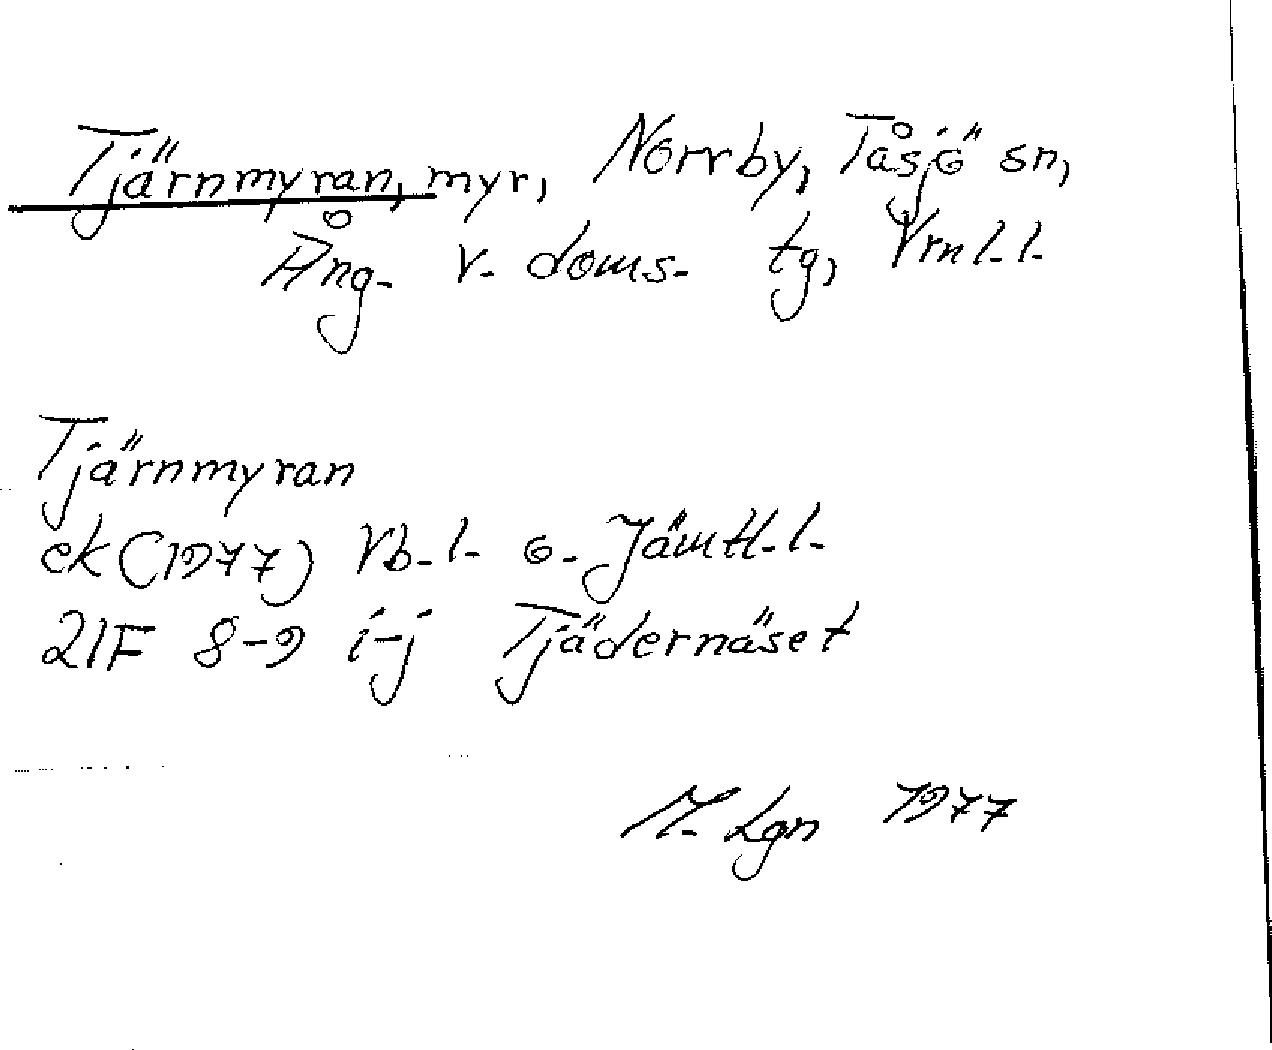 Tjärnmyran, myr, Norrby, Tåsjö sn,
Ång. v. doms. tg, Vrnl.l.
Tjärnmyran
ek (1977) Vb. l. o. Jämtl. l.
21F 8-9 i-j Tjädernäset
M. Lgn 1977